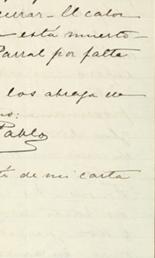 currar - El calor
- está muerto -
Parral por falta
los abraza de
mo:
Pablo
té de mi carta